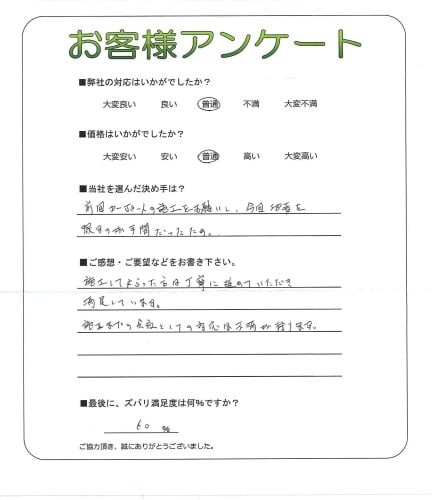 お客様アンケート
■弊社の対応はいかがでしたか？
大変良い 良い 普通 不満 大変不満
■価格はいかがでしたか？
大変安い 安い 普通 高い 大変高い
■当社を選んだ決め手は？
前回カーポートの施工をお願いし、今回他を
探すのが手間だったため。
■ご感想・ご要望などをお書き下さい。
施工してもらった方は丁寧に進めていただき
満足しています。
施工までの会社としての対応は不満が残ります。
■最後に、ズバリ満足度は何%ですか？
60 %
ご協力頂き、誠にありがとうございました。